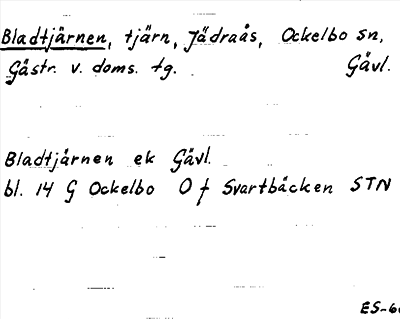 Bladtjärnen, tjärn, Jädraås, Ockelbo sn,
Gästr. v. doms. tg. Gävl.
Bladtjärnen ek Gävl.
bl. 14 G Ockelbo O f Svartbäcken STN